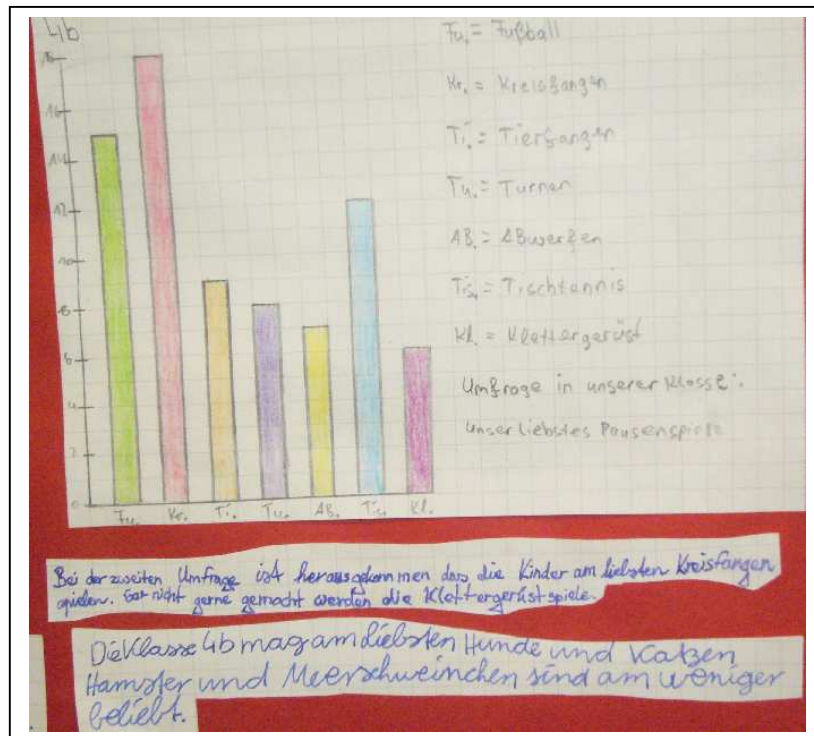 4b
18
16
14
12
10
8
6
4
2
0
Fu. Kr. Ti. Tu. AB. Tis. Kl.
Fu. = Fußball
Kr. = Kreisfangen
Ti. = Tierfangen
Tu. = Turnen
AB. = ABwerfen
Tis. = Tischtennis
Kl. = Klettergerüst
Umfrage in unserer Klasse:
unser liebstes Pausenspiel
Bei der zweiten Umfrage ist herausgekommen das die Kinder am liebsten Kreisfangen
spielen. Gar nicht gerne gemacht werden die Klettergerüstspiele.
Die Klasse 4b mag am liebsten Hunde und Katzen
Hamster und Meerschweinchen sind am weniger
beliebt.